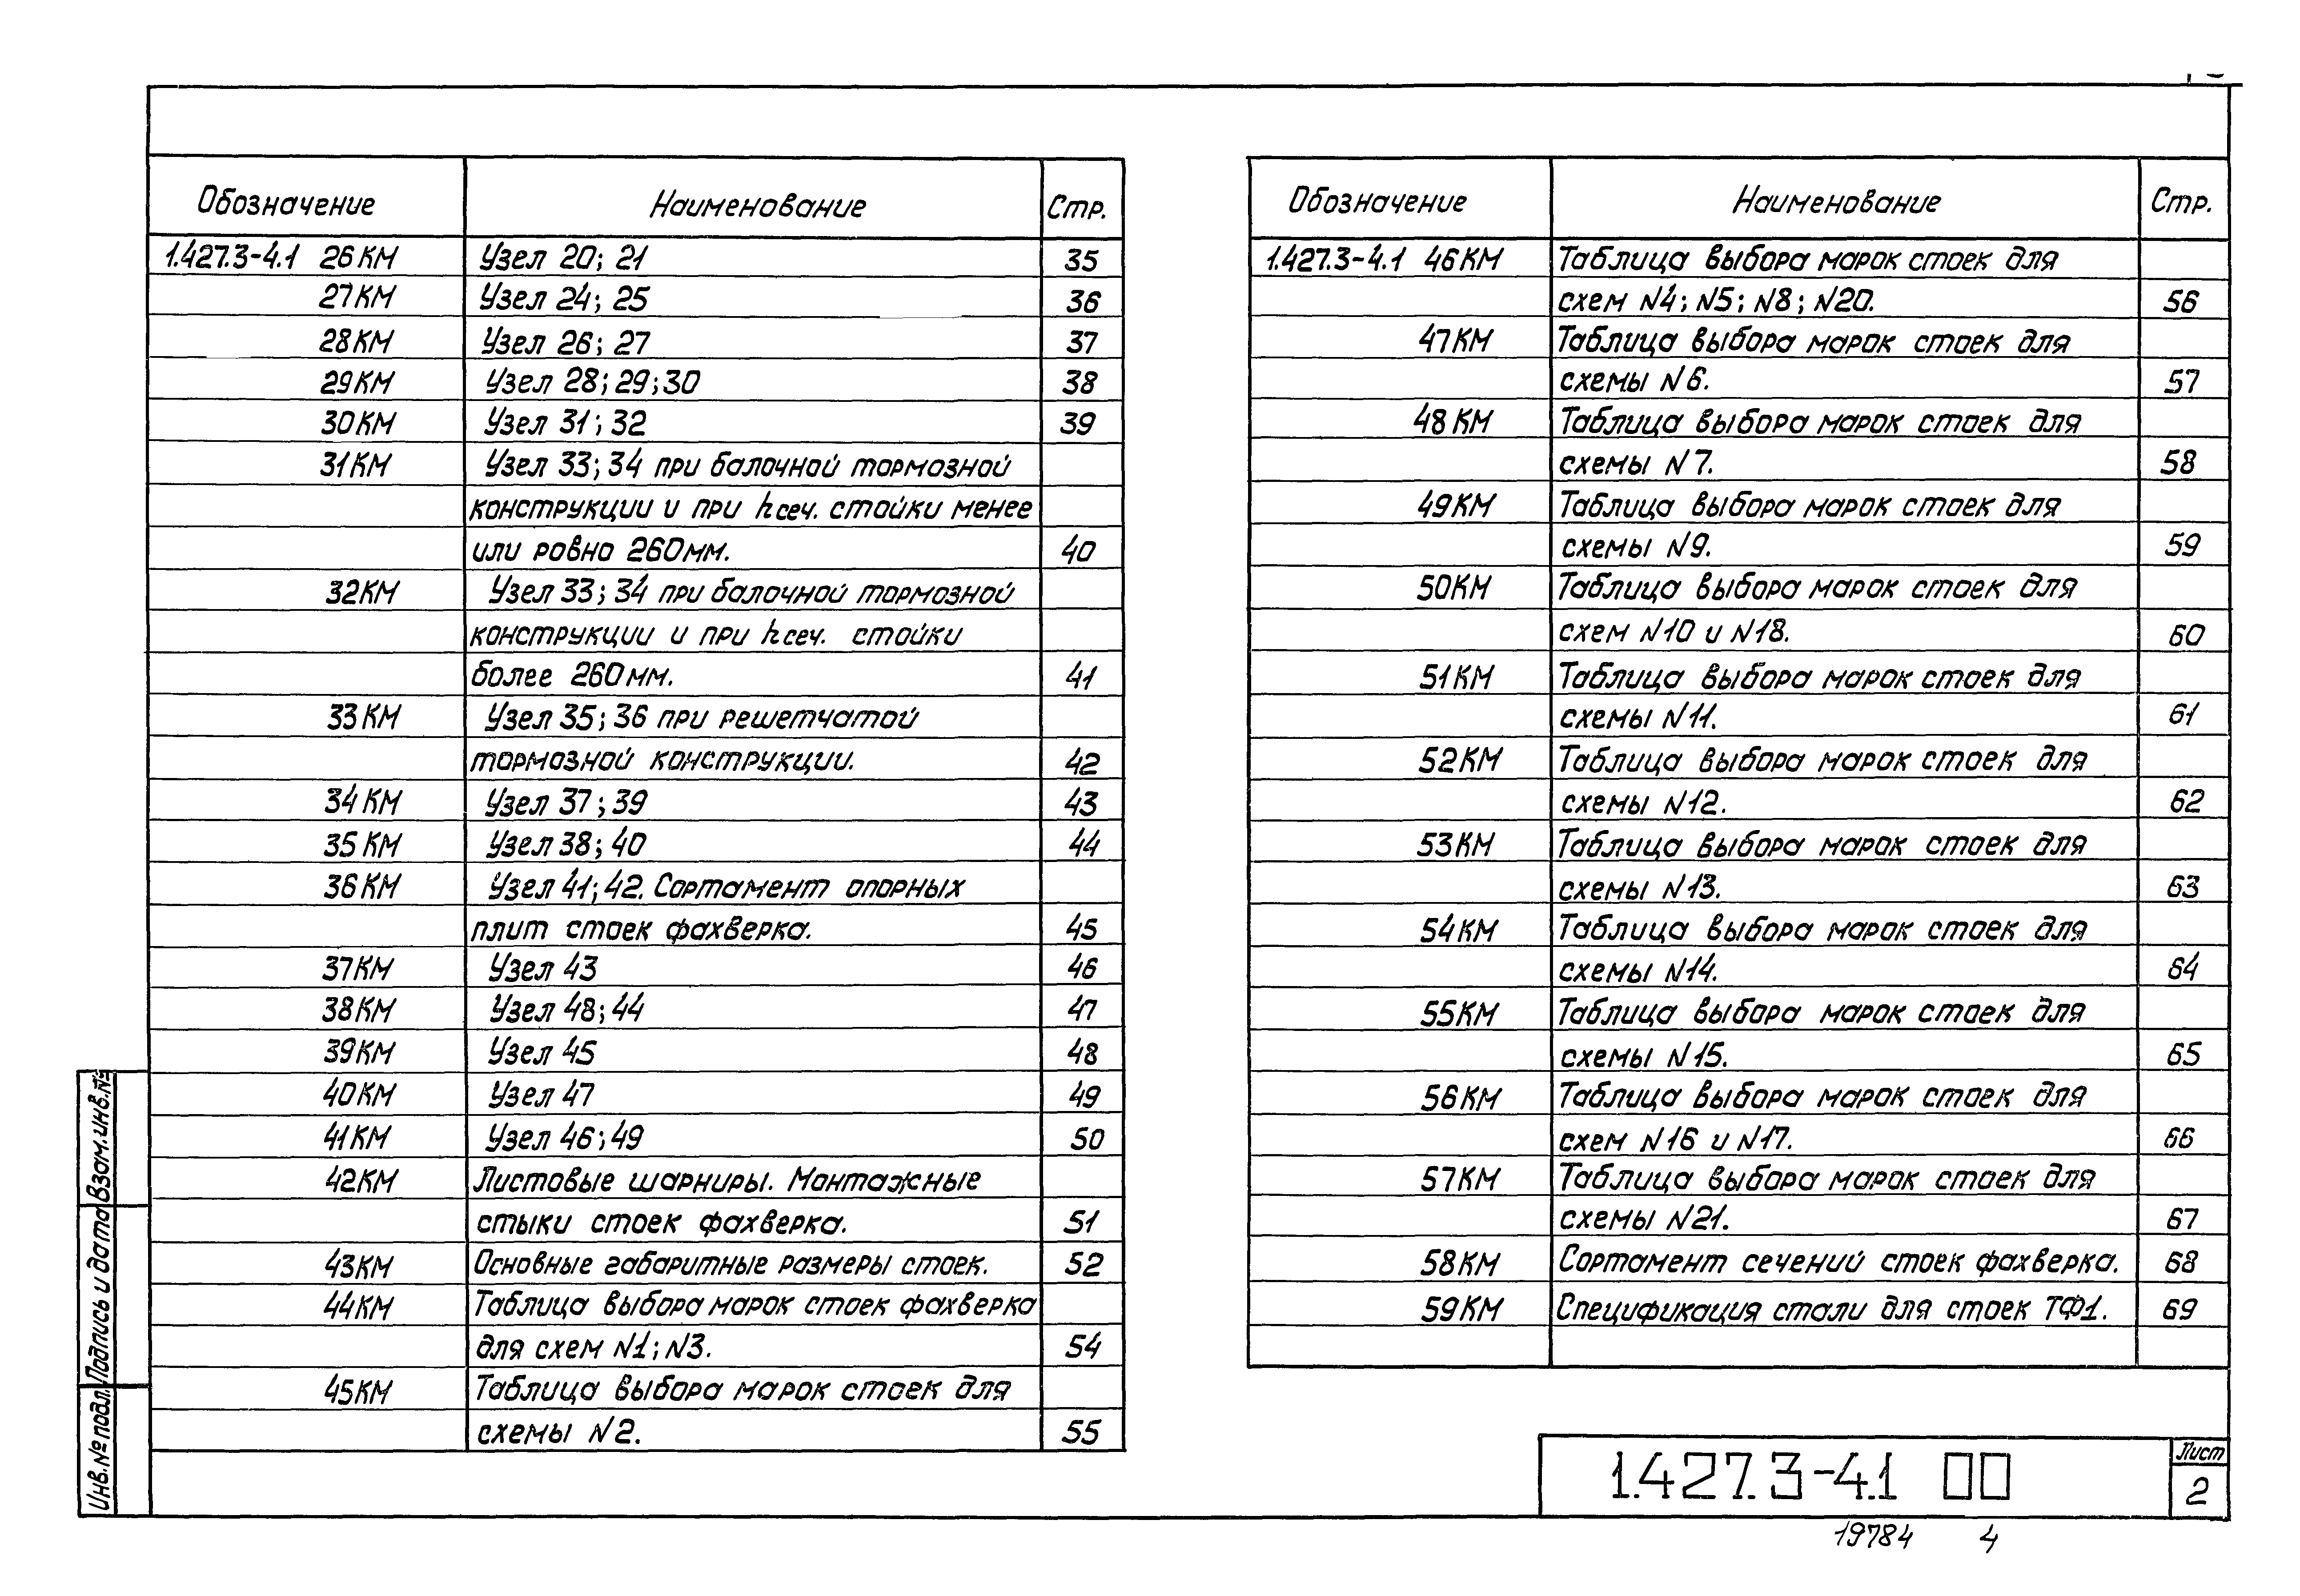 Обозначение Наименование Стр.
1.427.3-4.1 26КМ Узел 20; 21 35
27КМ Узел 24; 25 36
28КМ Узел 26; 27 37
29КМ Узел 28; 29; 30 38
30КМ Узел 31; 32 39
31КМ Узел 33; 34 при балочной тормозной
конструкции и при hсеч. стойки менее
или ровно 260мм. 40
32КМ Узел 33; 34 при балочной тормозной
конструкции и при hсеч. стойки
более 260мм. 41
33КМ Узел 35; 36 при решетчатой
тормозной конструкции. 42
34КМ Узел 37; 39 43
35КМ Узел 38; 40 44
36КМ Узел 41; 42. Сортамент опорных
плит стоек фахверка. 45
37КМ Узел 43 46
38КМ Узел 48; 44 47
39КМ Узел 45 48
40КМ Узел 47 49
41КМ Узел 46; 49 50
42КМ Листовые шарниры. Монтажные
стыки стоек фахверка. 51
43КМ Основные габаритные размеры стоек. 52
44КМ Таблица выбора марок стоек фахверка
для схем N1; N3. 54
45КМ Таблица выбора марок стоек для
схемы N2. 55
Обозначение Наименование Стр.
1.427.3-4.1 46КМ Таблица выбора марок стоек для
схем N4; N5; N8; N20. 56
47КМ Таблица выбора марок стоек для
схемы N6. 57
48КМ Таблица выбора марок стоек для
схемы N7. 58
49КМ Таблица выбора марок стоек для
схемы N9. 59
50КМ Таблица выбора марок стоек для
схем N10 и N18. 60
51КМ Таблица выбора марок стоек для
схемы N11. 61
52КМ Таблица выбора марок стоек для
схемы N12. 62
53КМ Таблица выбора марок стоек для
схемы N13. 63
54КМ Таблица выбора марок стоек для
схемы N14. 64
55КМ Таблица выбора марок стоек для
схемы N15. 65
56КМ Таблица выбора марок стоек для
схем N16 и N17. 66
57КМ Таблица выбора марок стоек для
схемы N21. 67
58КМ Сортамент сечений стоек фахверка. 68
59КМ Спецификация стали для стоек ТФ1. 69
Инв.№ подл. Подпись и дата Взам.инв.№
1.427.3-4.1 00
Лист
2
19784 4